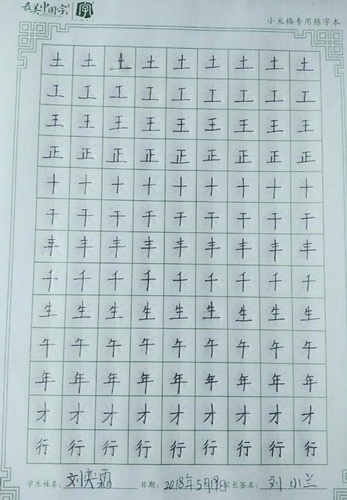 最美中国字 字
小米格专用练字本
土 土 土 土 土 土 土 土 土
工 工 工 工 工 工 工 工 工
王 王 王 王 王 王 王 王 王
正 正 正 正 正 正 正 正 正
十 十 十 十 十 十 十 十 十
干 干 干 干 干 干 干 干 干
丰 丰 丰 丰 丰 丰 丰 丰 丰
千 千 千 千 千 千 千 千 千
生 生 生 生 生 生 生 生 生
午 午 午 午 午 午 午 午 午
年 年 年 年 年 年 年 年 年
才 才 才 才 才 才 才 才 才
行 行 行 行 行 行 行 行 行
学生姓名: 刘奕霜 日期: 2018年5月19日 家长签名: 刘小兰